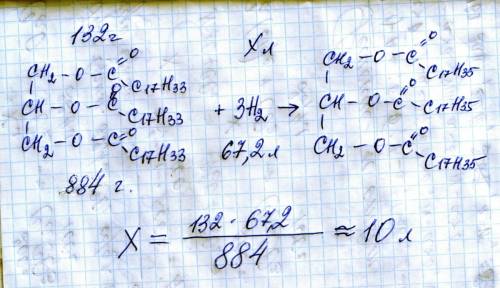 132г
X л
CH₂ – O – C =O C₁₇H₃₃
CH – O – C =O C₁₇H₃₃
CH₂ – O – C =O C₁₇H₃₃
884 г.
+ 3H₂ →
67,2 л
CH₂ – O – C =O C₁₇H₃₅
CH – O – C =O C₁₇H₃₅
CH₂ – O – C =O C₁₇H₃₅
X = 132 · 67,2 / 884 ≈ 10 л